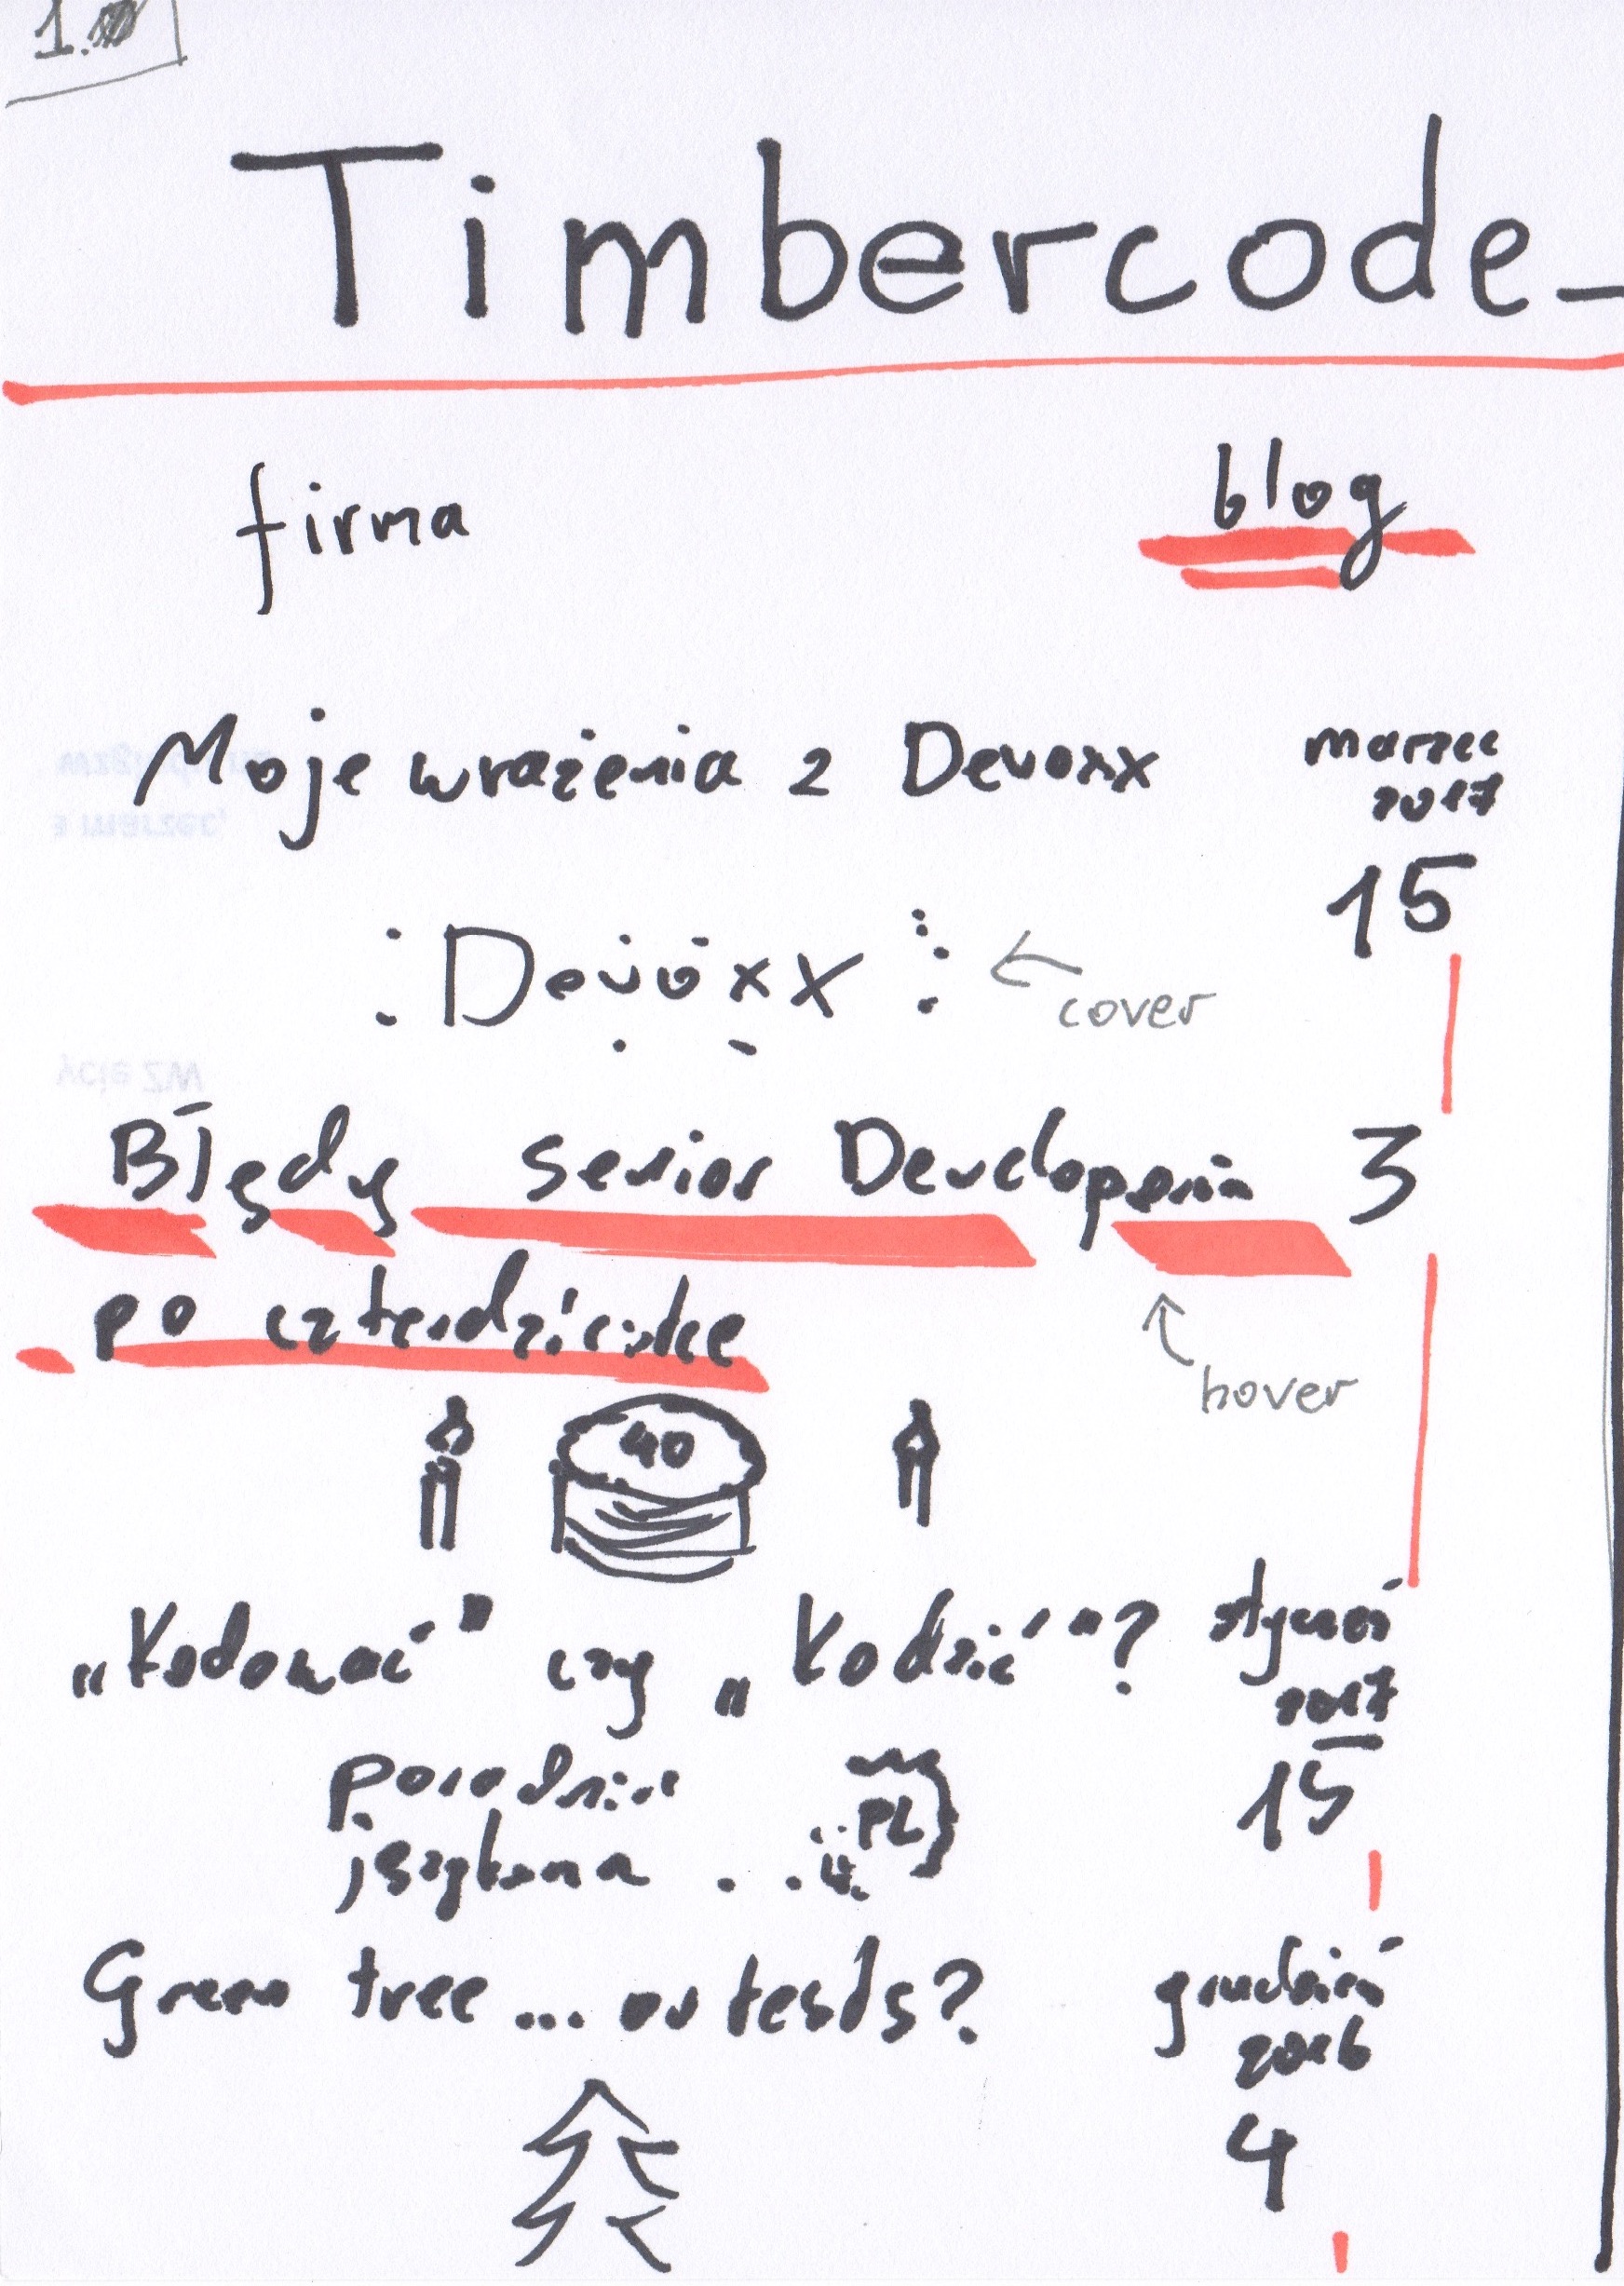 1.
Timbercode_
firma
blog
Moje wrażenia z Devoxx
marzec
2017
15
Devoxx
cover
Błędy senior Developerów 3
po czterdziestce
hover
40
„Kodować” czy „Kodzić“?
styczeń
2017
15
Poradnik
językowa
PL
Green tree... or tests?
grudzień
2016
4